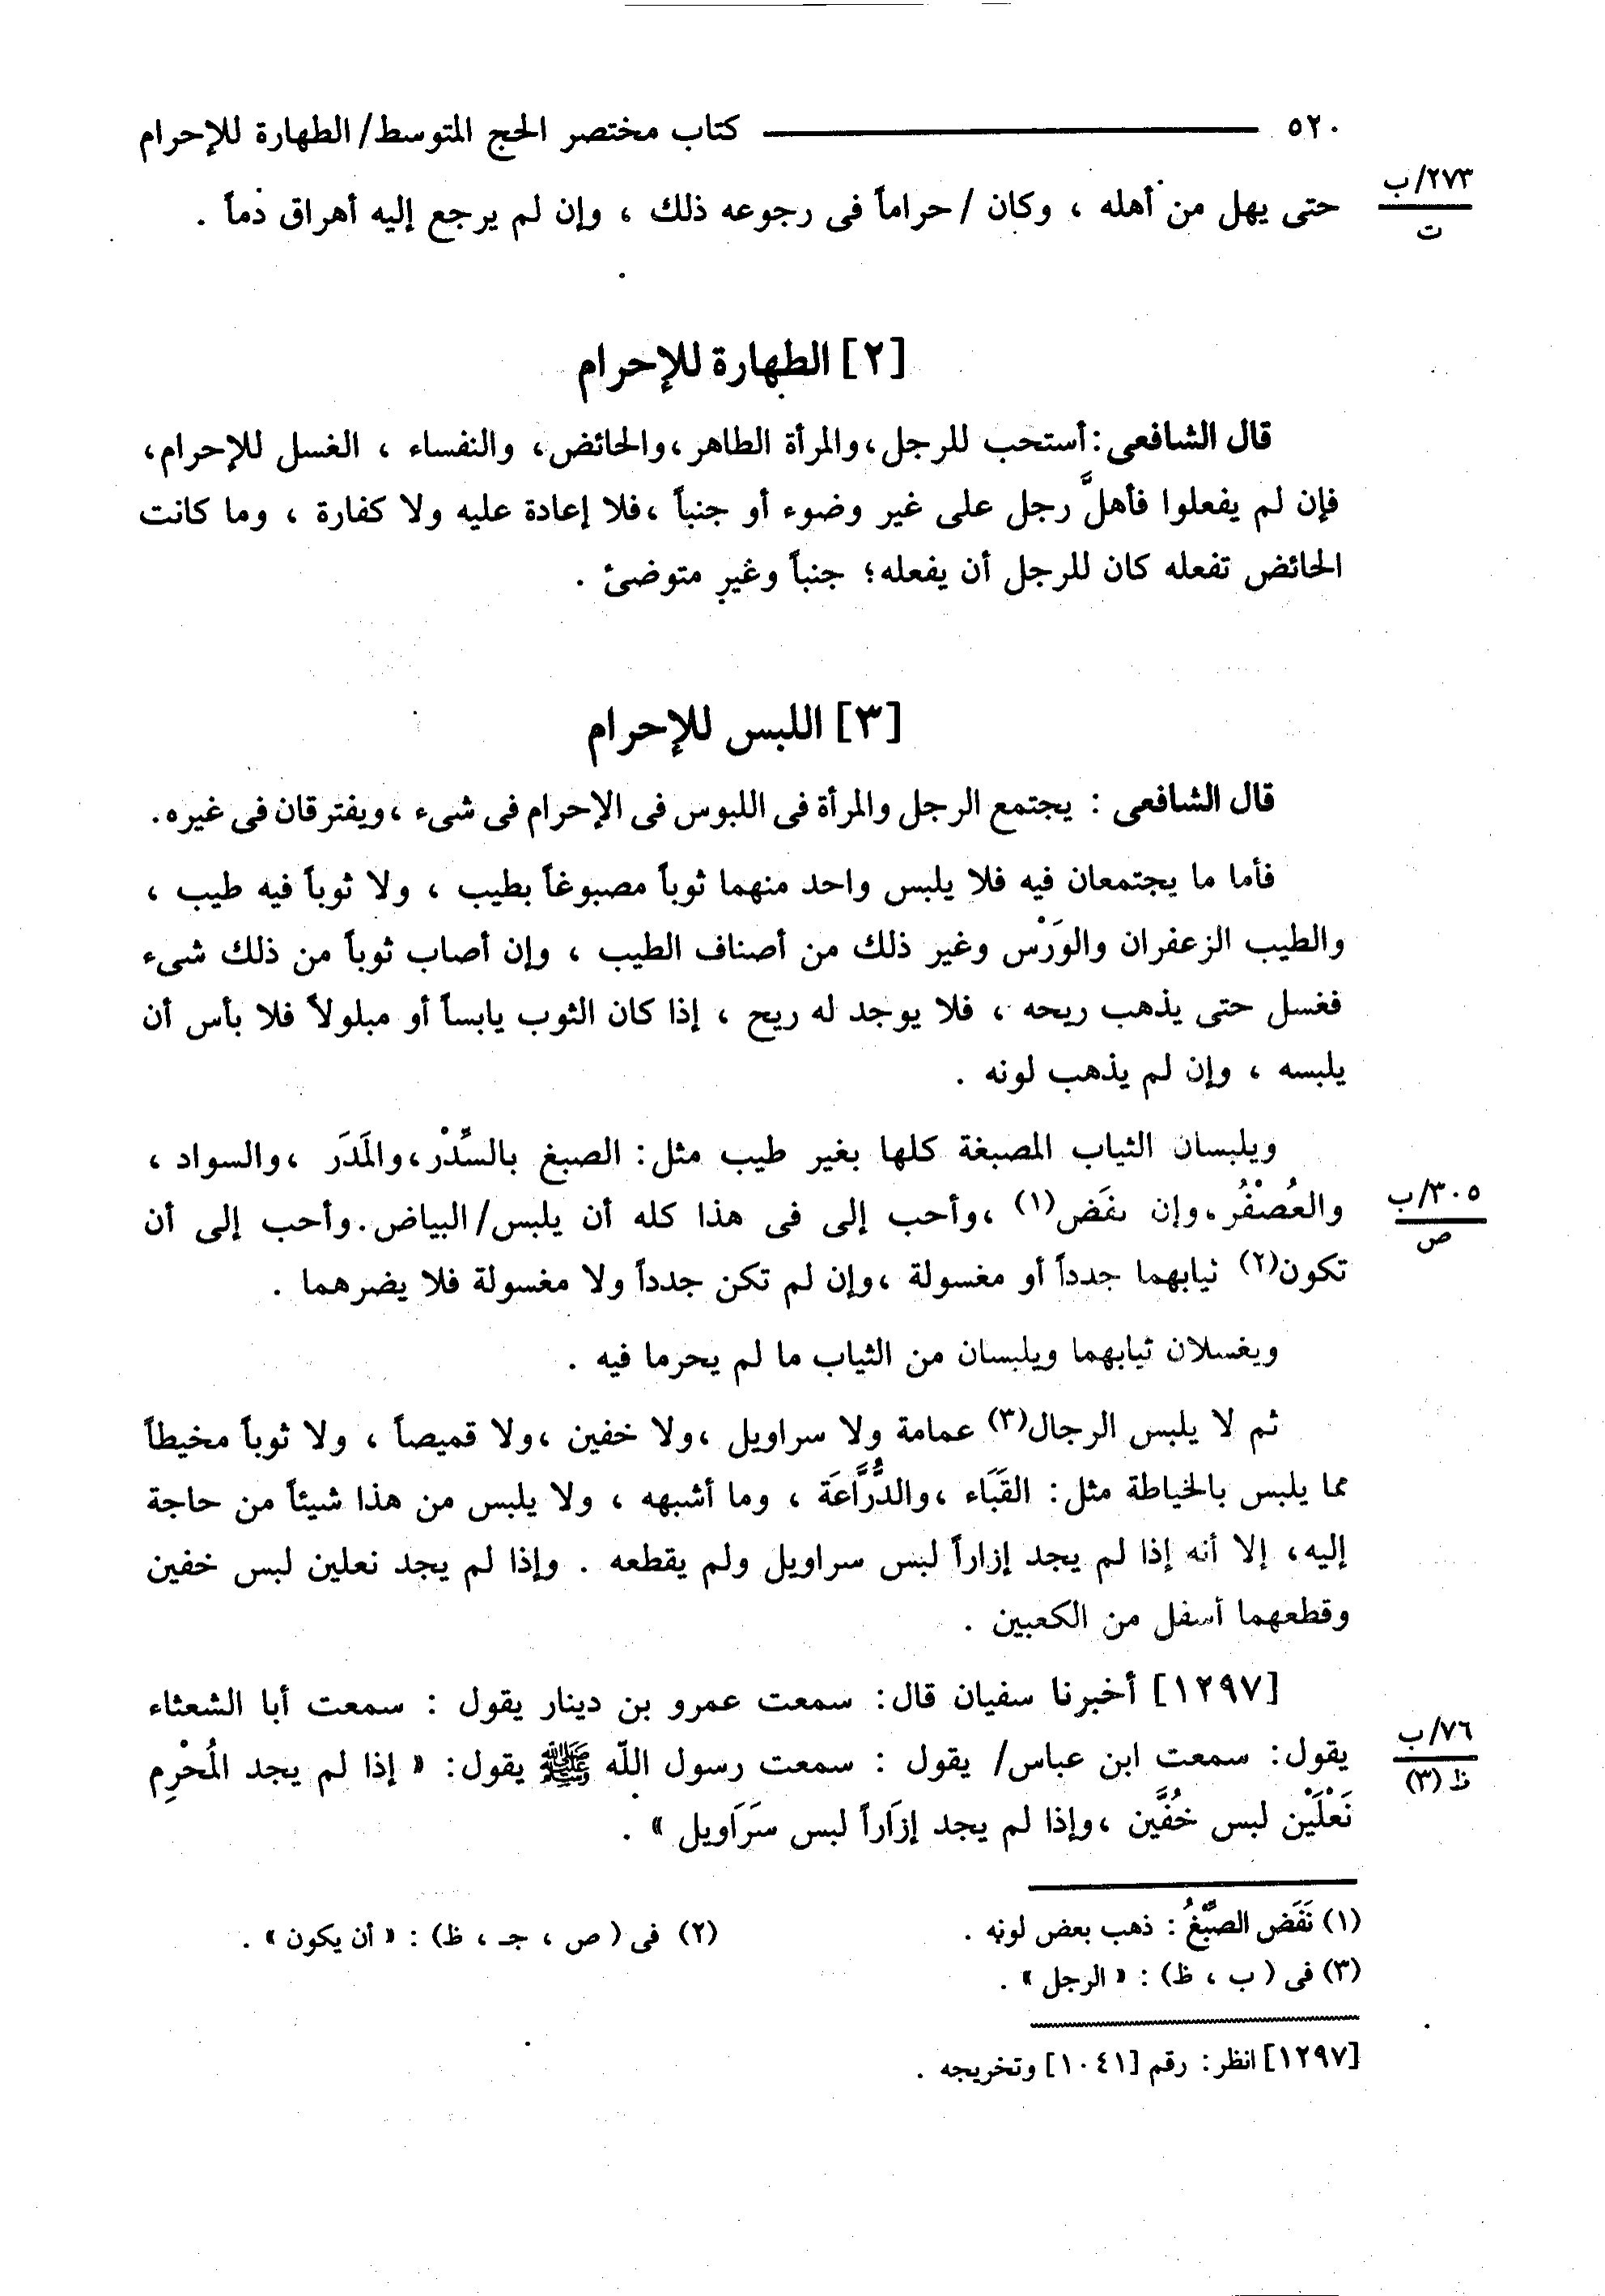 ٥٢٠ كتاب مختصر الحج المتوسط/ الطهارة للإحرام
٢٧٣/ب
ت
حتى يهل من أهله ، وكان / حراماً فى رجوعه ذلك ، وإن لم يرجع إليه أهراق دماً .
[٢] الطهارة للإحرام
قال الشافعى : أستحب للرجل ،والمرأة الطاهر ،والحائض، والنفساء ، الغسل للإحرام،
فإن لم يفعلوا فأهلَّ رجل على غير وضوء أو جنباً ،فلا إعادة عليه ولا كفارة ، وما كانت
الحائض تفعله كان للرجل أن يفعله؛ جنباً وغير متوضئ .
[٣] اللبس للإحرام
قال الشافعى : يجتمع الرجل والمرأة فى اللبوس فى الإحرام فى شىء ،ويفترقان فى غيره.
فأما ما يجتمعان فيه فلا يلبس واحد منهما ثوباً مصبوغاً بطيب ، ولا ثوباً فيه طيب ،
والطيب الزعفران والوَرْس وغير ذلك من أصناف الطيب ، وإن أصاب ثوباً من ذلك شىء
فغسل حتى يذهب ريحه ، فلا يوجد له ريح ، إذا كان الثوب يابساً أو مبلولاً فلا بأس أن
يلبسه ، وإن لم يذهب لونه .
ويلبسان الثياب المصبغة كلها بغير طيب مثل: الصبغ بالسِّدْر،والمَدَر ،والسواد ،
والعُصْفُر،وإن نفَض(١) ،وأحب إلى فى هذا كله أن يلبس/البياض.وأحب إلى أن
٣٠٥/ب
ص
تكون(٢) ثيابهما جدداً أو مغسولة ،وإن لم تكن جدداً ولا مغسولة فلا يضرهما .
ويغسلان ثيابهما ويلبسان من الثياب ما لم يحرما فيه .
ثم لا يلبس الرجال(٣) عمامة ولا سراويل ،ولا خفين ،ولا قميصاً ، ولا ثوباً مخيطاً
مما يلبس بالخياطة مثل: القَبَاء ،والدُّرَّاعَة ، وما أشبهه ، ولا يلبس من هذا شيئاً من حاجة
إليه، إلا أنه إذا لم يجد إزاراً لبس سراويل ولم يقطعه . وإذا لم يجد نعلين لبس خفين
وقطعهما أسفل من الكعبين .
[١٢٩٧] أخبرنا سفيان قال: سمعت عمرو بن دينار يقول : سمعت أبا الشعثاء
يقول: سمعت ابن عباس/ يقول : سمعت رسول اللّه ﷺ يقول: « إذا لم يجد المُحْرِم
٧٦/ب
ظ (٣)
نَعْلَيْن لبس خُفَّين ،وإذا لم يجد إزَاراً لبس سَرَاويل » .
(١) نَفَض الصِّبْغُ : ذهب بعض لونه . (٢) فى ( ص ، جـ ، ظ) : « أن يكون » .
(٣) فى ( ب ، ظ) : « الرجل » .
[١٢٩٧] انظر: رقم [١٠٤١] وتخريجه .